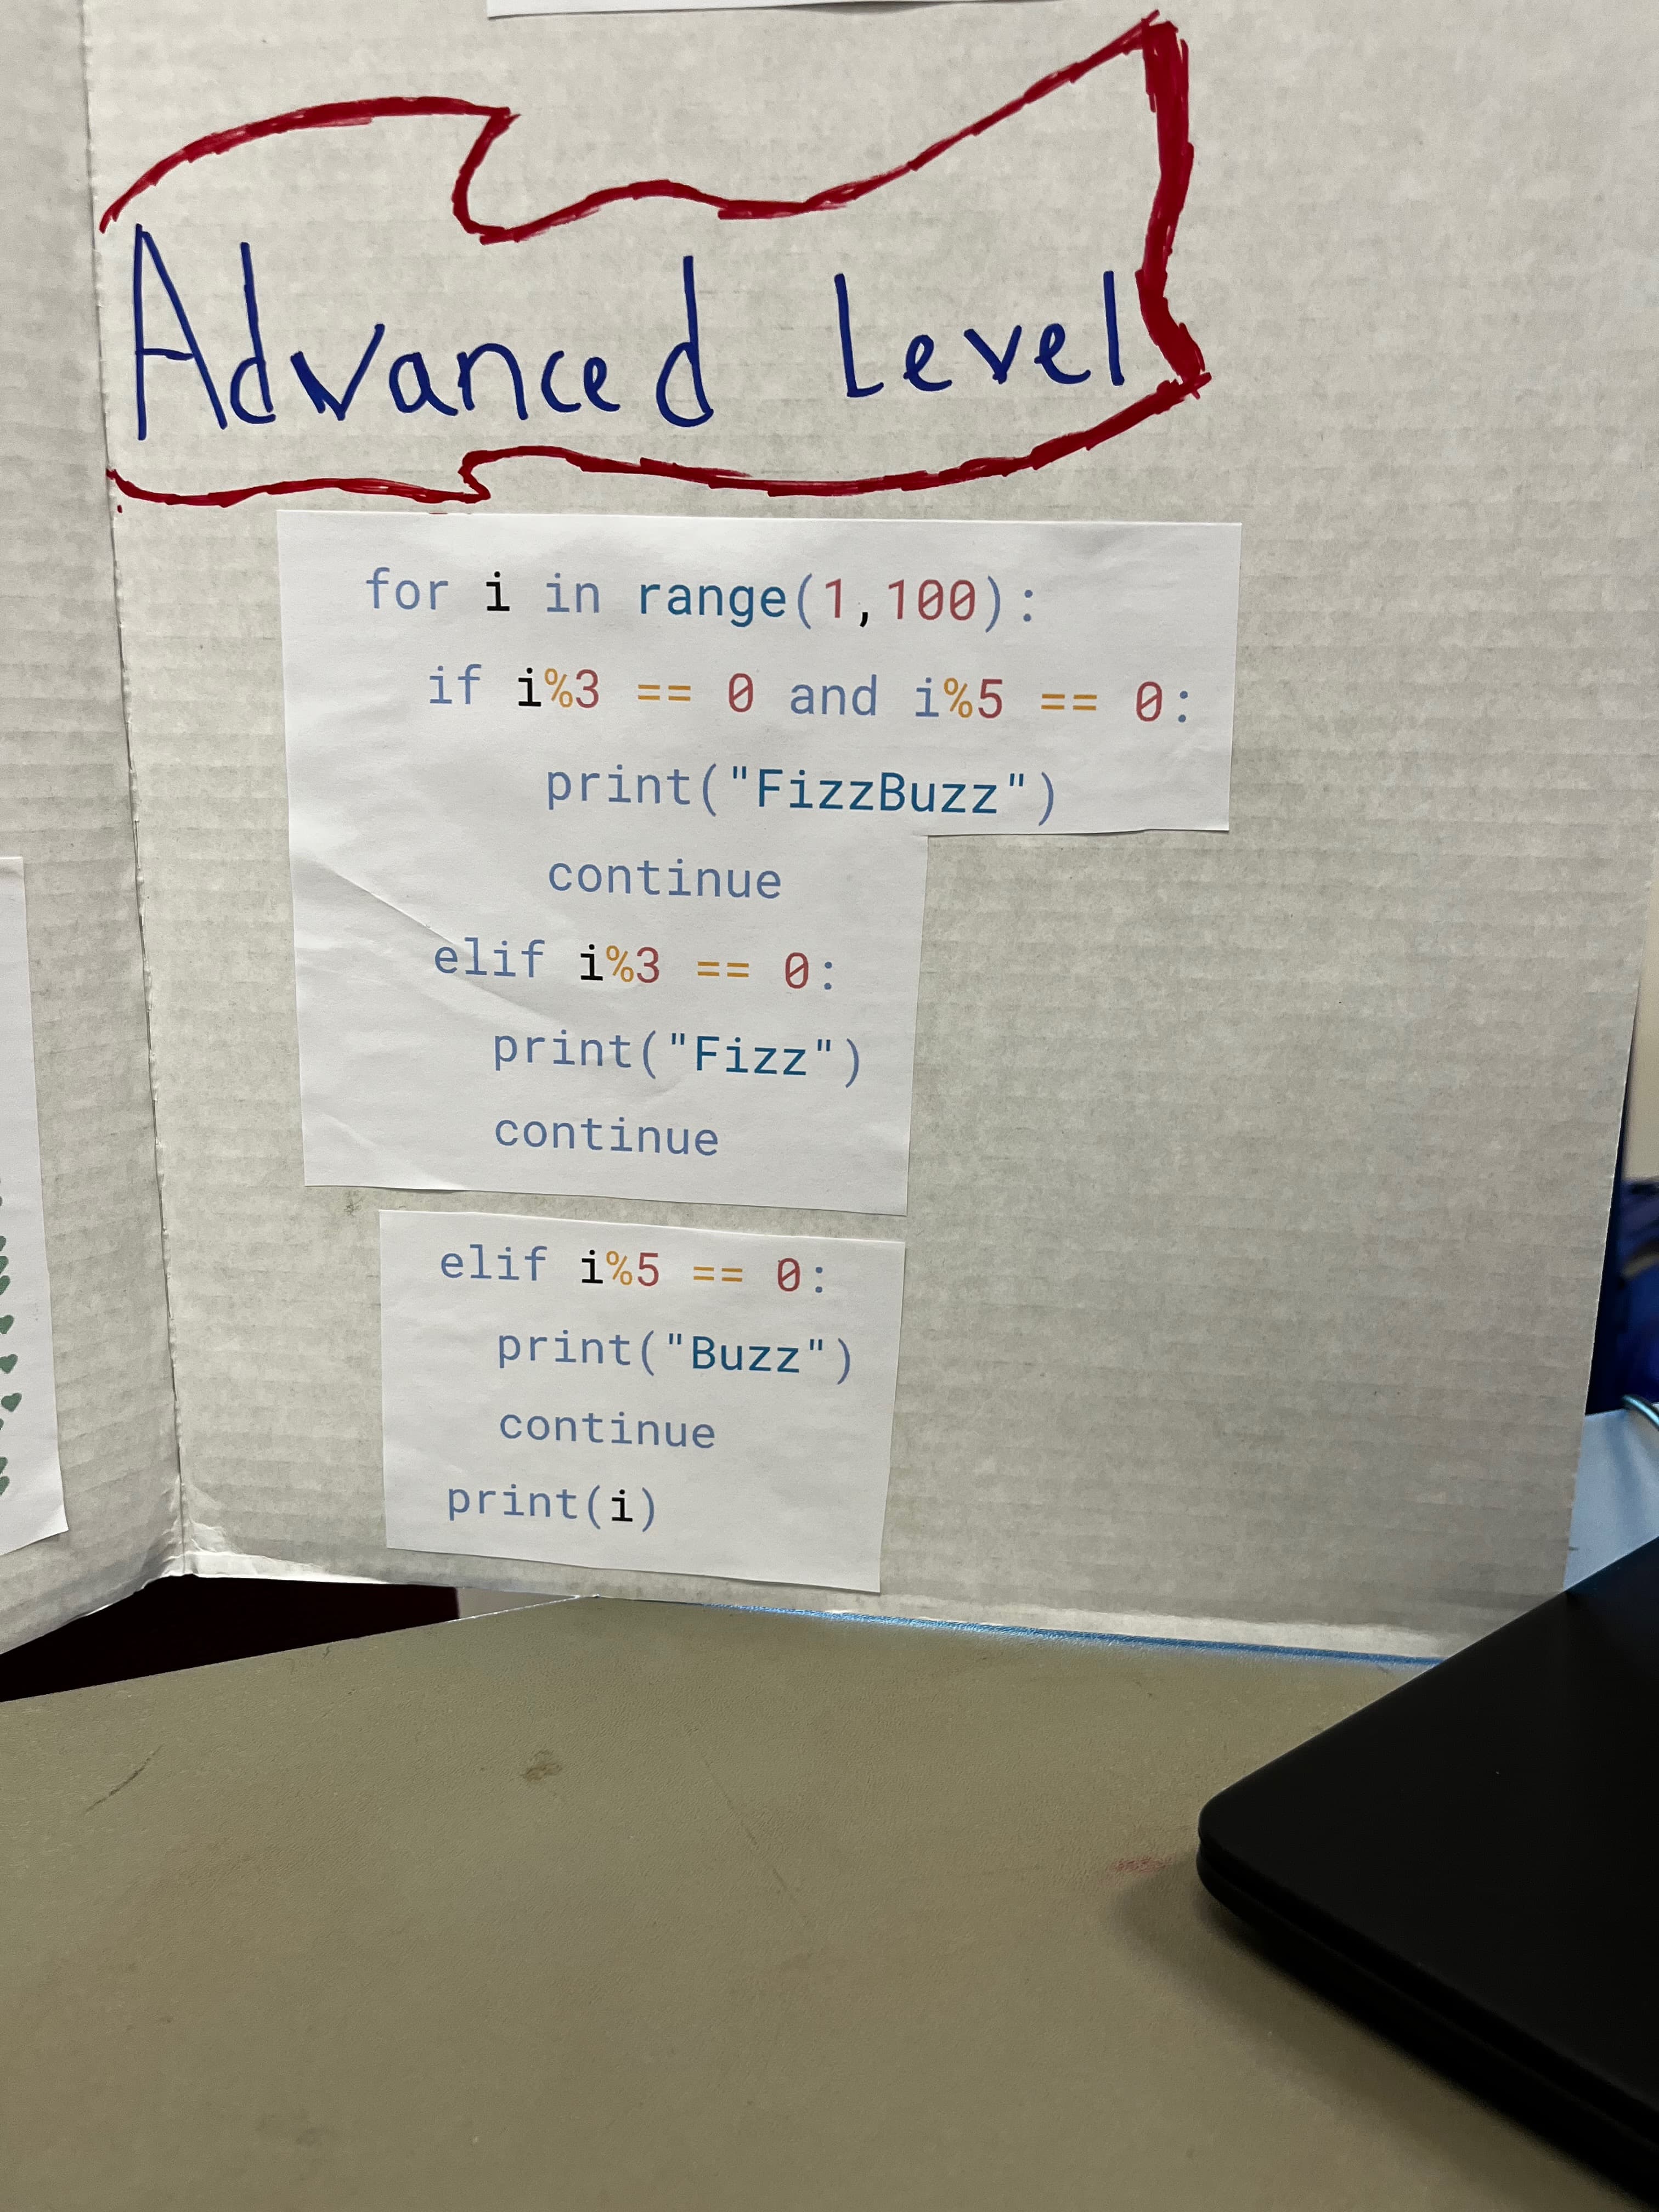 Advanced Level
for i in range(1,100):
if i%3 == 0 and i%5 == 0:
print("FizzBuzz")
continue
elif i%3 == 0:
print("Fizz")
continue
elif i%5 == 0:
print("Buzz")
continue
print(i)